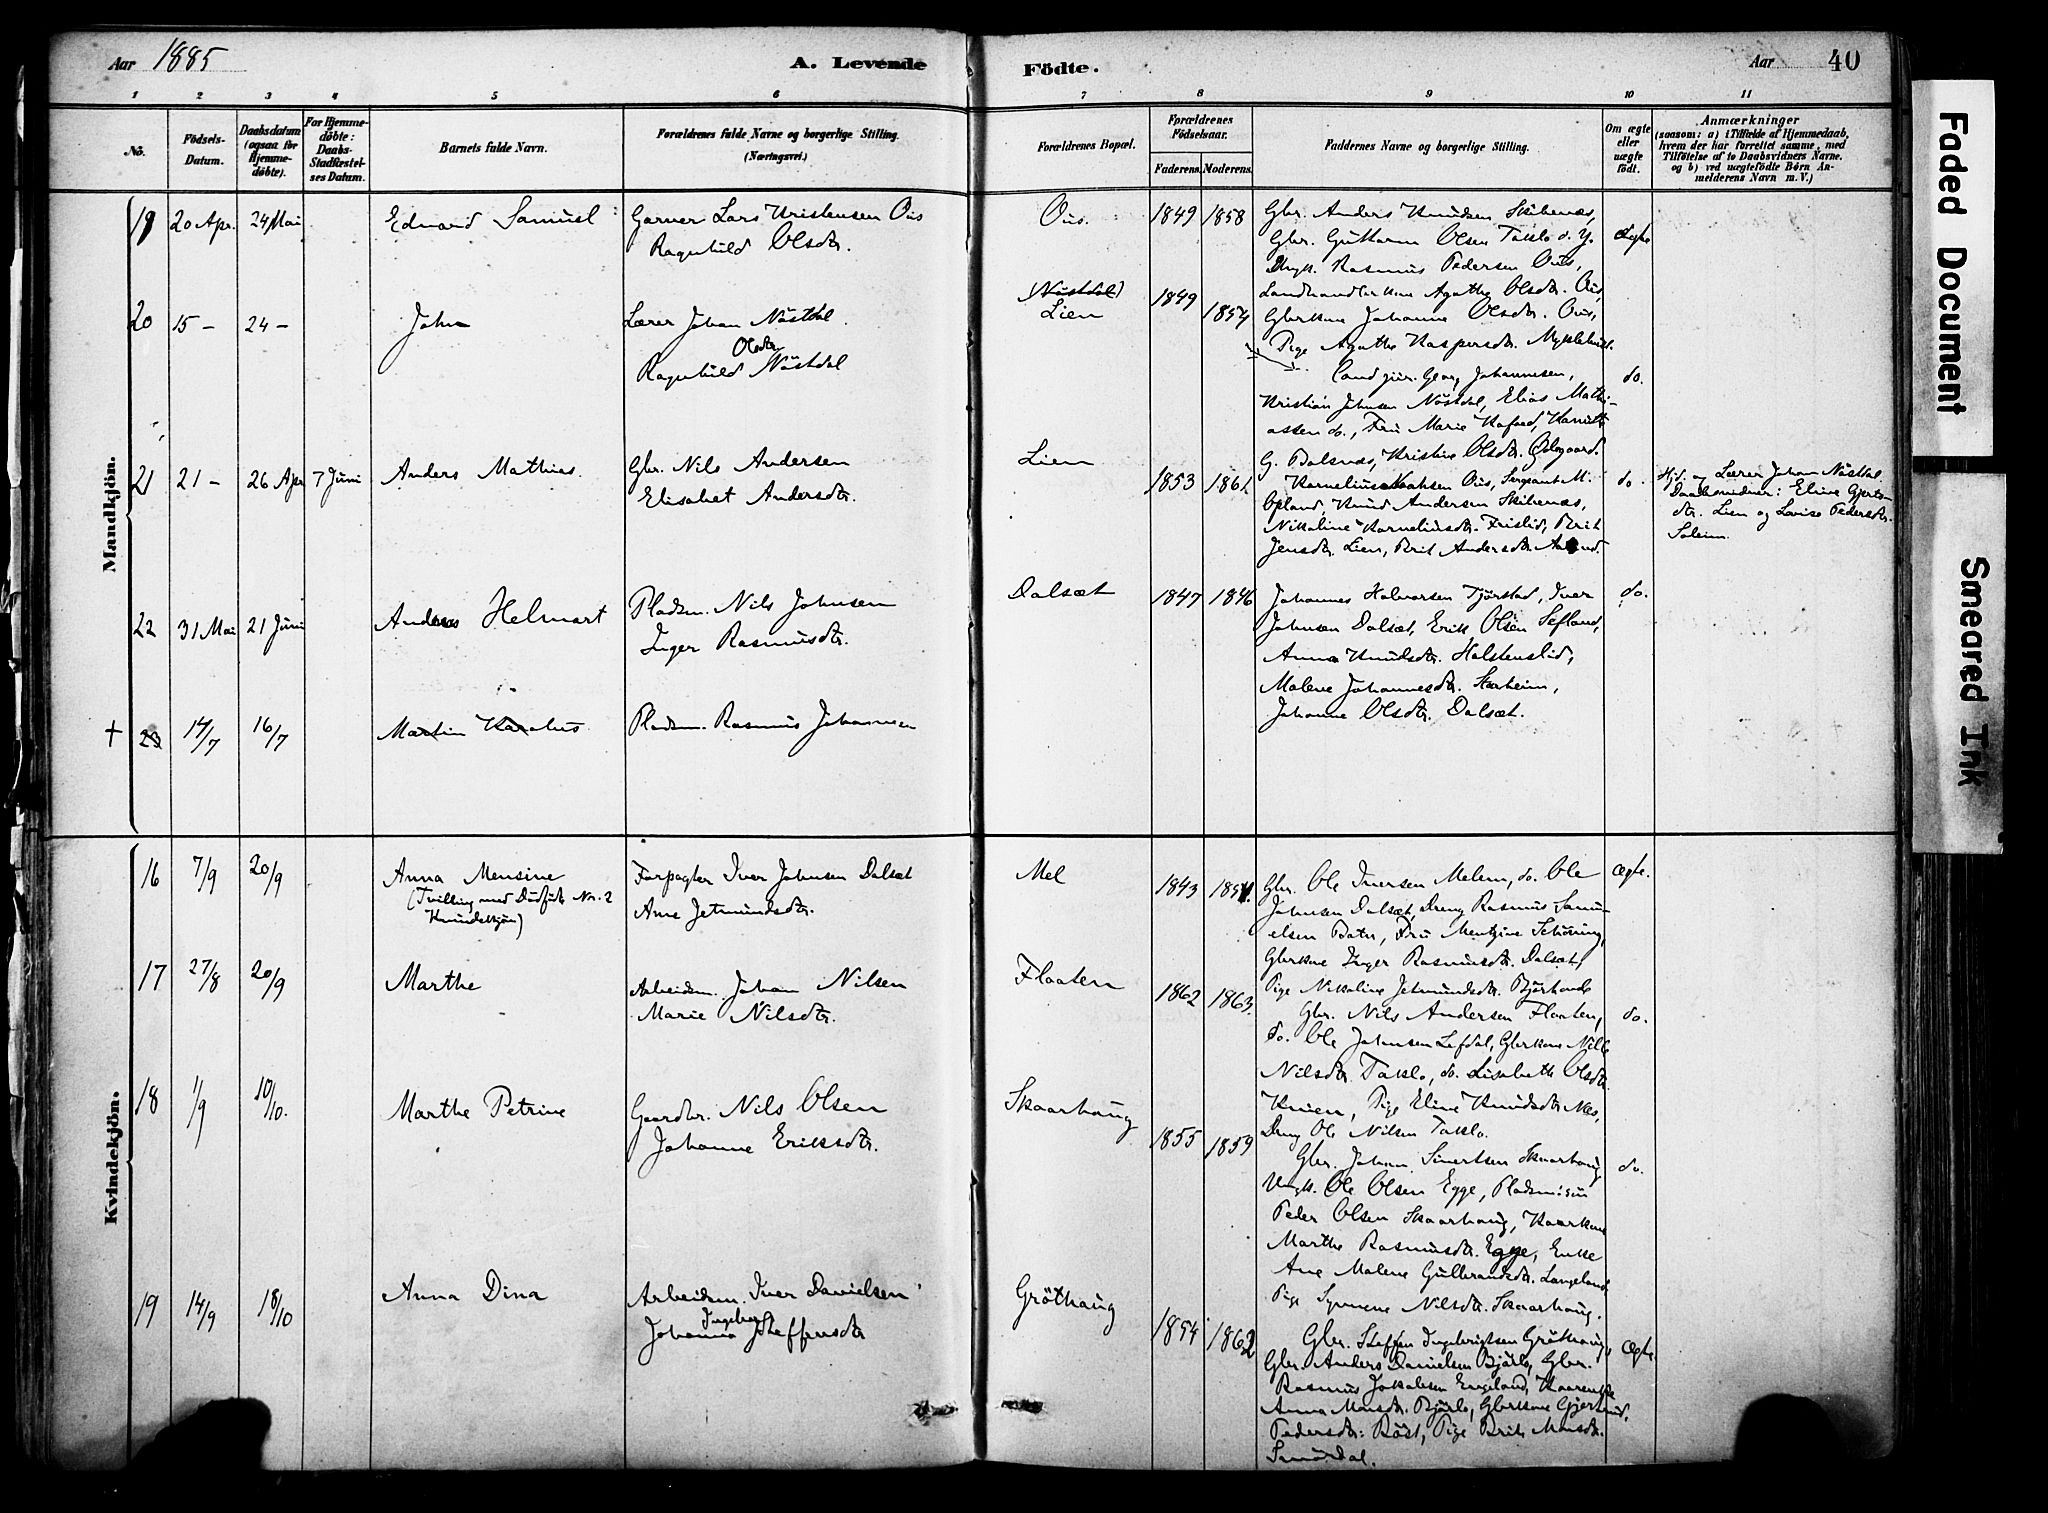 Aar 1885
A. Levende
Födte.
Aar 40
1 2 3 4 5 6 7 8 9 10 11
No.
Födsels-
Datum.
Daabsdatum
(ogsaa for
Hjemme-
döbte).
For Hjemme-
döbte:
Daabs-
Stadfæstel-
ses Datum.
Barnets fulde Navn.
Forældrenes fulde Navne og borgerlige Stilling.
(Næringsvei.)
Forældrenes Bopæl.
Forældrenes
Födselsaar.
Faderens. Moderens.
Faddernes Navne og borgerlige Stilling.
Om ægte
eller
uægte
födt.
Anmærkninger
(saasom: a) i Tilfælde af Hjemmedaab,
hvem der har forrettet samme, med
Tilföielse af to Daabsvidners Navne.
og b) ved uægtefödte Börn An-
melderens Navn m. V.)
Mandkjön.
19 20 Apr. 24 Mai
Edvard Samuel
Garver Lars Kristensen Ous
Ragnhild Olsdtr.
Ous.
1849 1858
Gbr. Anders Knudsen Skibenæs,
Gbr. Guttorm Olsen Taklo d. y.
Ungk. Rasmus Pedersen Ous,
Landhandlerkone Agathe Olsdtr. Ous,
Gbrkone Johanne Olsdtr. Ous,
Pige Agathe Kaspersdtr. Myklebust.
Ægte
20 15 - 24 -
John
Lærer Johan Nöstdal
Olsdtr
Ragnhild Nöstdal
(Nöstdal)
Lien
1849 1854
Cand. jur. Georg Johannesen,
Kristian Johnsen Nöstdal, Elias Mathi-
assen do., Fru Marie Kafoed,
G. Balsnes, Kristine Olsdtr. Ödegaard.
do.
21 21 - 26 Apr 7 Juni
Anders Mathias.
Gbr. Nils Andersen
Elisabet Andersdtr.
Lien
1853 1861
Kornelius Ous, Sergeant M.
Opland, Knud Andersen Skibenæs,
Nikoline Korneliusdtr. Frislid, Brit
Jensdtr. Lien, Brit Andersdtr.
do.
Hjd. og Lærer Johan Nöstdal
Daabsvidner: Eline Gjerts-
dtr. Lien og Lovise Pedersdtr.
Soleim.
22 31 Mai 21 Juni
Anders Helmart
Pladsm. Nils Johnsen
Inger Rasmusdtr.
Dalsæt
1847 1846
Johannes Halvorsen Tjörstad, Iver
Johnsen Dalsæt, Erik Olsen Sefland,
Anna Knudsdtr. Holstenslid,
Malene Johannesdtr. Skarheim,
Johanne Olsdtr. Dalsæt.
do.
† 23 14/7 16/7
Martin Karolus
Pladsm. Rasmus Johannesen
Kvindekjön.
16 7/9 20/9
Anna Mensine
(Tvilling med Dödfödt No. 2
Kvindekjön)
Forpagter Iver Johnsen Dalsæt
Ane Jetmundsdtr.
Mel
1843 1851.
Gbr. Ole Iversen Melem, do. Ole
Johnsen Dalsæt, Dreng Rasmus Samu-
elsen Fru Mentzine Schöning,
Gbrkone Inger Rasmusdtr. Dalsæt,
Pige Nikoline Jetmundsdtr. Björhovde
Ægte.
17 27/8 20/9
Marthe
Arbeidsm. Johan Nilsen
Marie Nilsdtr.
Flaaten
1862 1863.
Gbr. Nils Andersen Flaaten,
do. Ole Johnsen Lefdal, Gbrkone Nille
Nilsdtr. Taklo, do. Lisabeth Olsdtr.
Kvien, Pige Eline Knudsdtr. Næs,
Dreng Ole Nilsen Taklo.
do.
18 1/9 10/10.
Marthe Petrine
Gaardbr. Nils Olsen
Johanne Eriksdtr.
Skaarhaug
1855 1859
Gbr. Johan Sivertsen Skaarhaug
Ungk. Ole Olsen Egge, Pladsmand
Peder Olsen Skaarhaug, Kaarkone
Marthe Rasmusdtr. Egge, Enke
Ane Malene Gulbrandsdtr. Langeland
Pige Synneve Nilsdtr. Skaarhaug.
do.
19 14/9 18/10
Anna Dina
Arbeidsm. Iver Danielsen
Ingeborg
Johanna Steffensdtr
Gröthaug
1854 1862
Gbr. Steffen Ingebrigtsen Gröthaug,
Gbr. Anders Danielsen Bjørlo, Gbr.
Rasmus Jakobsen Engeland,
Anna Monsdtr. Bjørlo, Gbrkone Gjertrud
Pedersdtr: Röst, Pige Brite Monsdtr.
Smördal.
Ægte.
Faded Document
Smeared Ink